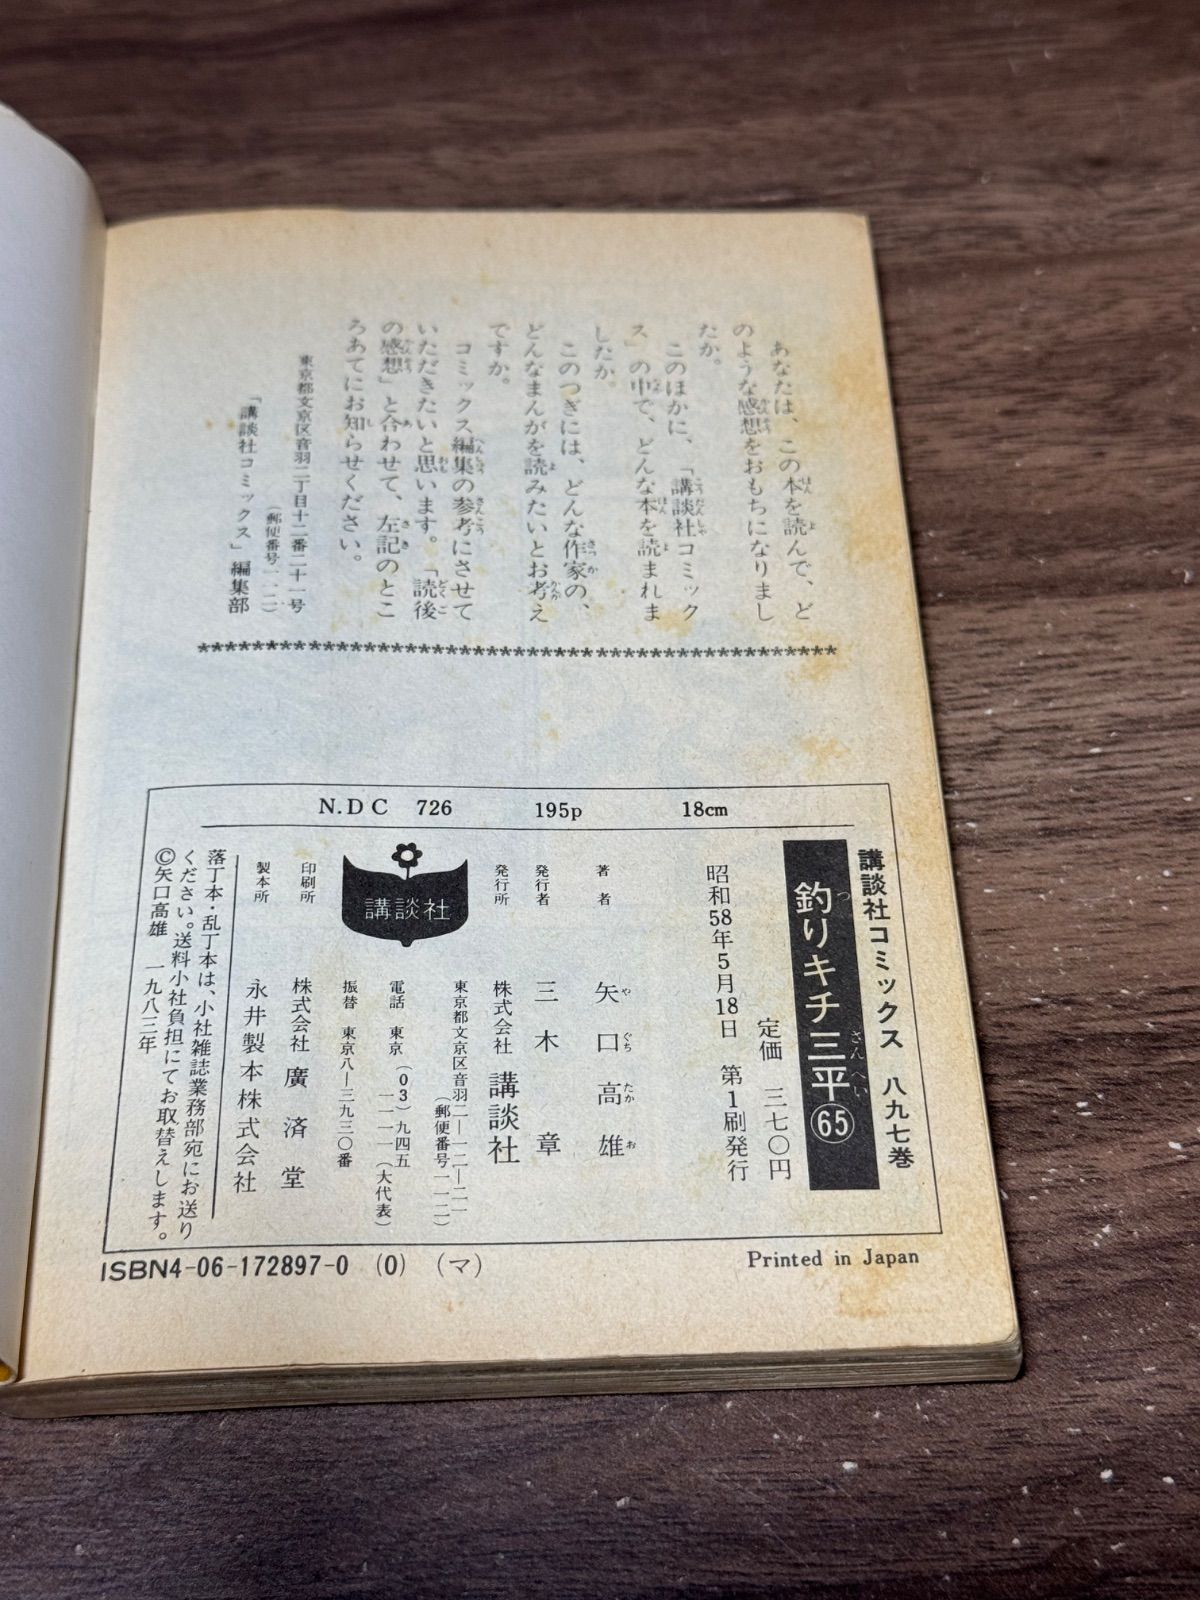 あなたは、この本を読んで、ど
のような感想をおもちになりまし
たか。
このほかに、「講談社コミック
ス」の中で、どんな本を読まれま
したか。
このつぎには、どんな作家の、
どんなまんがを読みたいとお考え
ですか。
コミックス編集の参考にさせて
いただきたいと思います。「読後
の感想」と合わせて、左記のとこ
ろあてにお知らせください。
東京都文京区音羽二丁目十二番二十一号
(郵便番号一一二)
「講談社コミックス」編集部
***********************************************
N.D C 726 195p 18cm
講談社コミックス 八九七巻
釣りキチ三平65
定価 三七〇円
昭和58年5月18日 第1刷発行
著者 矢口高雄
発行者 三木 章
発行所 株式会社 講談社
東京都文京区音羽二―一二―二一
(郵便番号一一二)
電話 東京(03)九四五
一一一一(大代表)
振替 東京八―三九三〇番
講談社
印刷所 株式会社 廣済堂
製本所 永井製本株式会社
落丁本・乱丁本は、小社雑誌業務部宛にお送り
ください。送料小社負担にてお取替えします。
©矢口高雄 一九八三年
ISBN4-06-172897-0 (0) (マ)
Printed in Japan